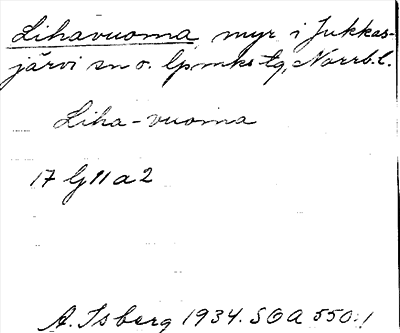 Lihavuoma, myr i Jukkas-
järvi sn o. lpmks tg, Norrb. l.
Liha-vuoma
17 G 11 a 2
A. Isberg 1934. SOA 550:1